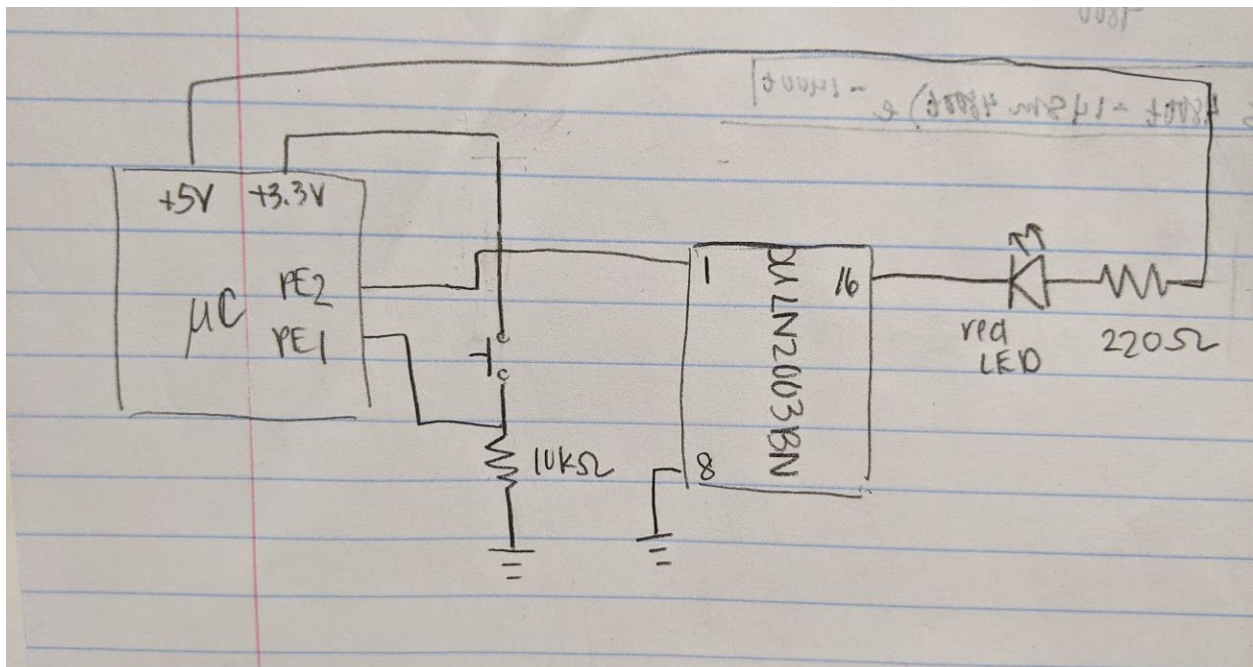 +5V +3.3V
PE2
µC
PE1
1
16
ULN2003BN
8
10KΩ
red
LED
220Ω